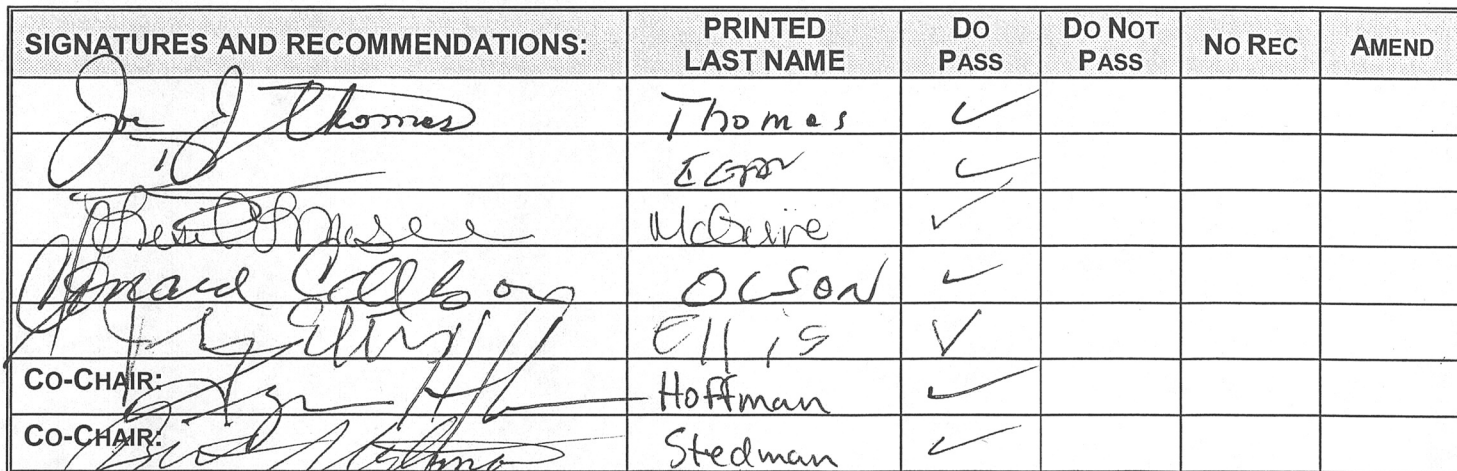 SIGNATURES AND RECOMMENDATIONS: PRINTED LAST NAME DO PASS DO NOT PASS NO REC AMEND
Joe J Thomas Thomas ✓
EGAN ✓
McGuire ✓
OLSON ✓
Ellis ✓
CO-CHAIR: Hoffman ✓
CO-CHAIR: Stedman ✓